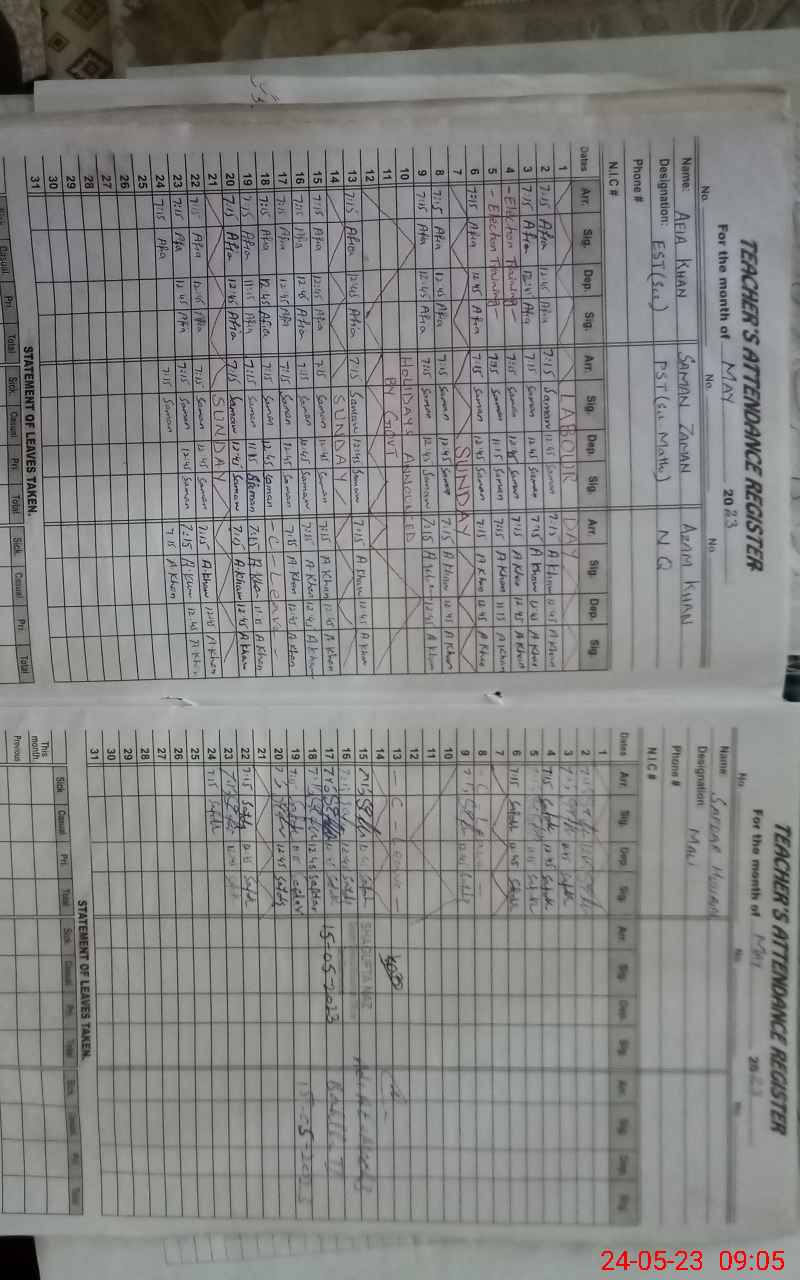 TEACHER'S ATTENDANCE REGISTER
For the month of MAY 2023
No. No. No.
Name: AFIA KHAN SAMAN ZAMAN AZAM KHAN
Designation: EST(Sci) PST(Sci Math) N.Q
Phone #
N.I.C #
Dates Arr. Sig. Dep. Sig. Arr. Sig. Dep. Sig. Arr. Sig. Dep. Sig.
1 LABOUR DAY
2 7:15 Afia 12:45 Afia 7:15 Saman 12:45 Saman 7:15 A.Khan 12:45 A.Khan
3 7:15 Afia 12:45 Afia 7:15 Saman 12:45 Saman 7:15 A.Khan 12:45 A.Khan
4 - Election Training - 7:15 Saman 12:45 Saman 7:15 A.Khan 12:45 A.Khan
5 - Election Training - 7:15 Saman 11:15 Saman 7:15 A.Khan 11:15 A.Khan
6 7:15 Afia 12:45 Afia 7:15 Saman 12:45 Saman 7:15 A.Khan 12:45 A.Khan
7 SUNDAY
8 7:15 Afia 12:45 Afia 7:15 Saman 12:45 Saman 7:15 A.Khan 12:45 A.Khan
9 7:15 Afia 12:45 Afia 7:15 Saman 12:45 Saman 7:15 A.Khan 12:45 A.Khan
10 HOLIDAYS ANNOUNCED
11 BY GOVT
12
13 7:15 Afia 12:45 Afia 7:15 Saman 12:45 Saman 7:15 A.Khan 12:45 A.Khan
14 SUNDAY
15 7:15 Afia 12:45 Afia 7:15 Saman 12:45 Saman 7:15 A.Khan 12:45 A.Khan
16 7:15 Afia 12:45 Afia 7:15 Saman 12:45 Saman 7:15 A.Khan 12:45 A.Khan
17 7:15 Afia 12:45 Afia 7:15 Saman 12:45 Saman 7:15 A.Khan 12:45 A.Khan
18 7:15 Afia 12:45 Afia 7:15 Saman 12:45 Saman - C - Leave -
19 7:15 Afia 11:15 Afia 7:15 Saman 11:15 Saman 7:15 A.Khan 11:15 A.Khan
20 7:15 Afia 12:45 Afia 7:15 Saman 12:45 Saman 7:15 A.Khan 12:45 A.Khan
21 SUNDAY
22 7:15 Afia 12:45 Afia 7:15 Saman 12:45 Saman 7:15 A.Khan 12:45 A.Khan
23 7:15 Afia 12:45 Afia 7:15 Saman 12:45 Saman 7:15 A.Khan 12:45 A.Khan
24 7:15 Afia 7:15 Saman 7:15 A.Khan
25
26
27
28
29
30
31
STATEMENT OF LEAVES TAKEN.
Sick Casual Pri Total Sick Casual Pri Total Sick Casual Pri Total
TEACHER'S ATTENDANCE REGISTER
For the month of MAY 2023
No. No. No.
Name: SAFDAR
Designation: MALI
Phone #
N.I.C #
Dates Arr. Sig. Dep. Sig. Arr. Sig. Dep. Sig. Arr. Sig. Dep. Sig.
1
2
3
4 7:15 12:45
5
6 7:15 12:45
7
8 - C - Leave -
9
10
11
12
13 - C - Leave -
14
15 SHAGUFTA NAZ
16
17 15-05-2023
18 12:45 Safdar 15-05-2023
19 Safdar
20 12:45
21
22 7:15
23
24 7:15
25
26
27
28
29
30
31
STATEMENT OF LEAVES TAKEN.
Sick Casual Pri Total Sick Casual Pri Total Sick Casual Pri Total
This month
Previous
24-05-23 09:05